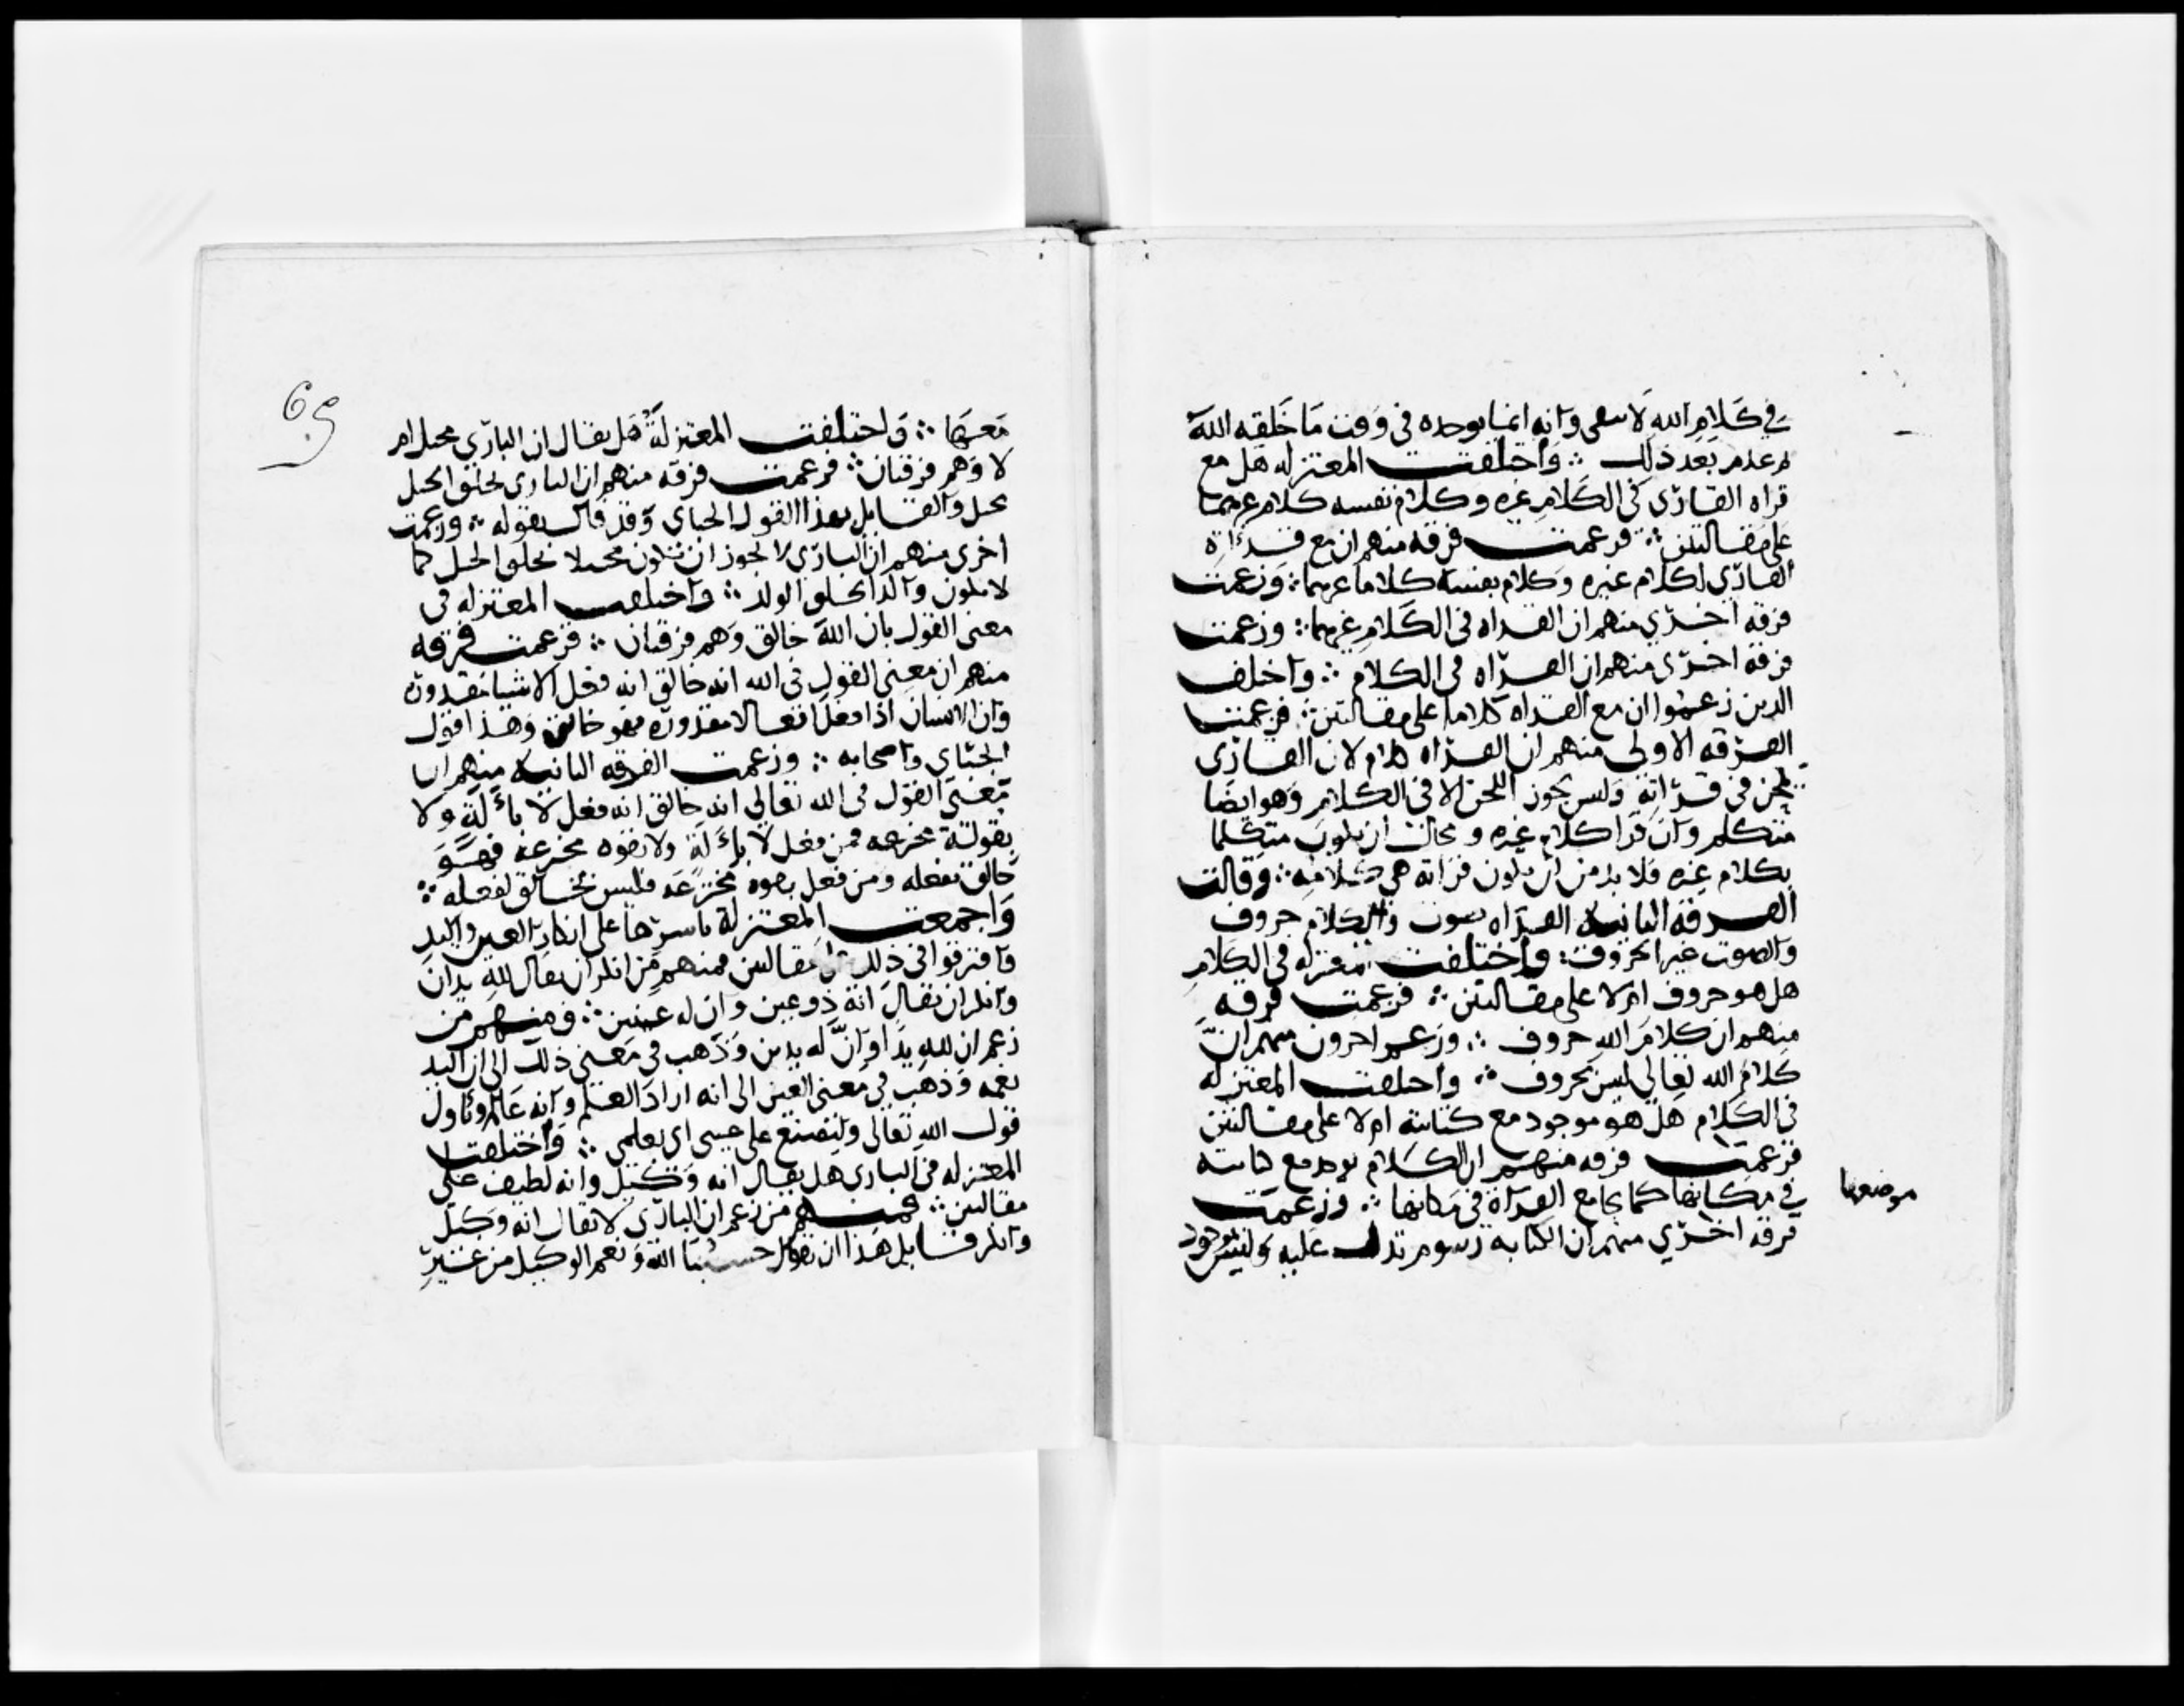 في كلام الله لا يبقى وانه انما يوجده في وقت ما خلقه الله
ثم عدم بعد ذلك ∴ واختلفت المعتزله هل مع
قراه القارى في الكلام غيره وكلام نفسه كلام غيرهما
على مقالتين ∴ فزعمت فرقه منهم ان مع قراءة
القارى لكلام غيره وكلام نفسه كلاما غيرهما ∴ وزعمت
فرقه اخرى منهم ان القراه في الكلام غيرهما ∴ وزعمت
فرقه اخرى منهم ان القراه في الكلام ∴ واختلف
الذين زعموا ان مع القراه كلاما على مقالتين ∴ فزعمت
الفرقه الاولى منهم ان القراه كلام لان القارى
يلحن في قراته وليس يجوز اللحن الا في الكلام وهو ايضا
متكلم وان قرا كلام غيره ومحال ان يكون متكلما
بكلام غيره فلا بد من ان يكون قراته هي كلامه ∴ وقالت
الفرقه الثانيه القراه صوت والكلام حروف
والصوت غير الحروف ∴ واختلفت المعتزله في الكلام
هل هو حروف ام لا على مقالتين ∴ فزعمت فرقه
منهم ان كلام الله حروف ∴ وزعم اخرون منهم ان
كلام الله تعالى ليس بحروف ∴ واختلفت المعتزله
في الكلام هل هو موجود مع كتابته ام لا على مقالتين
فزعمت فرقه منهم ان الكلام يوجد مع كتابته
في مكانها كما يجامع القراة في مكانها ∴ وزعمت
موضعها
فرقه اخرى منهم ان الكتابه رسوم تدل عليه وليس بموجود
69
معها ∴ واختلفت المعتزلة هل يقال ان البارى محبل ام
لا وهم فرقتان ∴ فزعمت فرقه منهم ان البارى بخلق الحبل
محبل والقايل بهذا القول الجباى وقد قال بقوله ∴ وزعمت
اخرى منهم ان البارى لا يجوز ان يكون محبلا بخلق الحبل كما
لا يكون والدا بخلق الولد ∴ واختلفت المعتزله في
معنى القول بان الله خالق وهم فرقتان ∴ فزعمت فرقه
منهم ان معنى القول في الله انه خالق انه فعل الاشيا مقدره
وان الانسان اذا فعل افعالا مقدوره فهو خالق وهذا قول
الجبّاى واصحابه ∴ وزعمت الفرقه الثانيه منهم ان
معنى القول في الله تعالى انه خالق انه فعل لا بالة ولا
بقوة مخترعه فمن فعل لا بالة ولا بقوه مخترعه فهو
خالق لفعله ومن فعل بقوه مخترعه فليس بخالق لفعله ∴
واجمعت المعتزلة باسرها على انكار العين واليد
وافترقوا في ذلك على مقالتين فمنهم من انكر ان يقال لله يدان
وانكر ان يقال انه ذو عين وان له عينين ∴ ومنهم من
زعم ان لله يدا وان له يدين وذهب في معنى ذلك الى ان اليد
نعمه وذهب في معنى العين الى انه اراد العلم وانه عالم وتاول
قول الله تعالى ولتصنع على عينى اى بعلمى ∴ واختلفت
المعتزله في البارى هل يقال انه وكيل وانه لطيف على
مقالتين ∴ فمنهم من زعم ان البارى لا يقال انه وكيل
وانكر قايل هذا ان يقول حسبنا الله ونعم الوكيل من غير